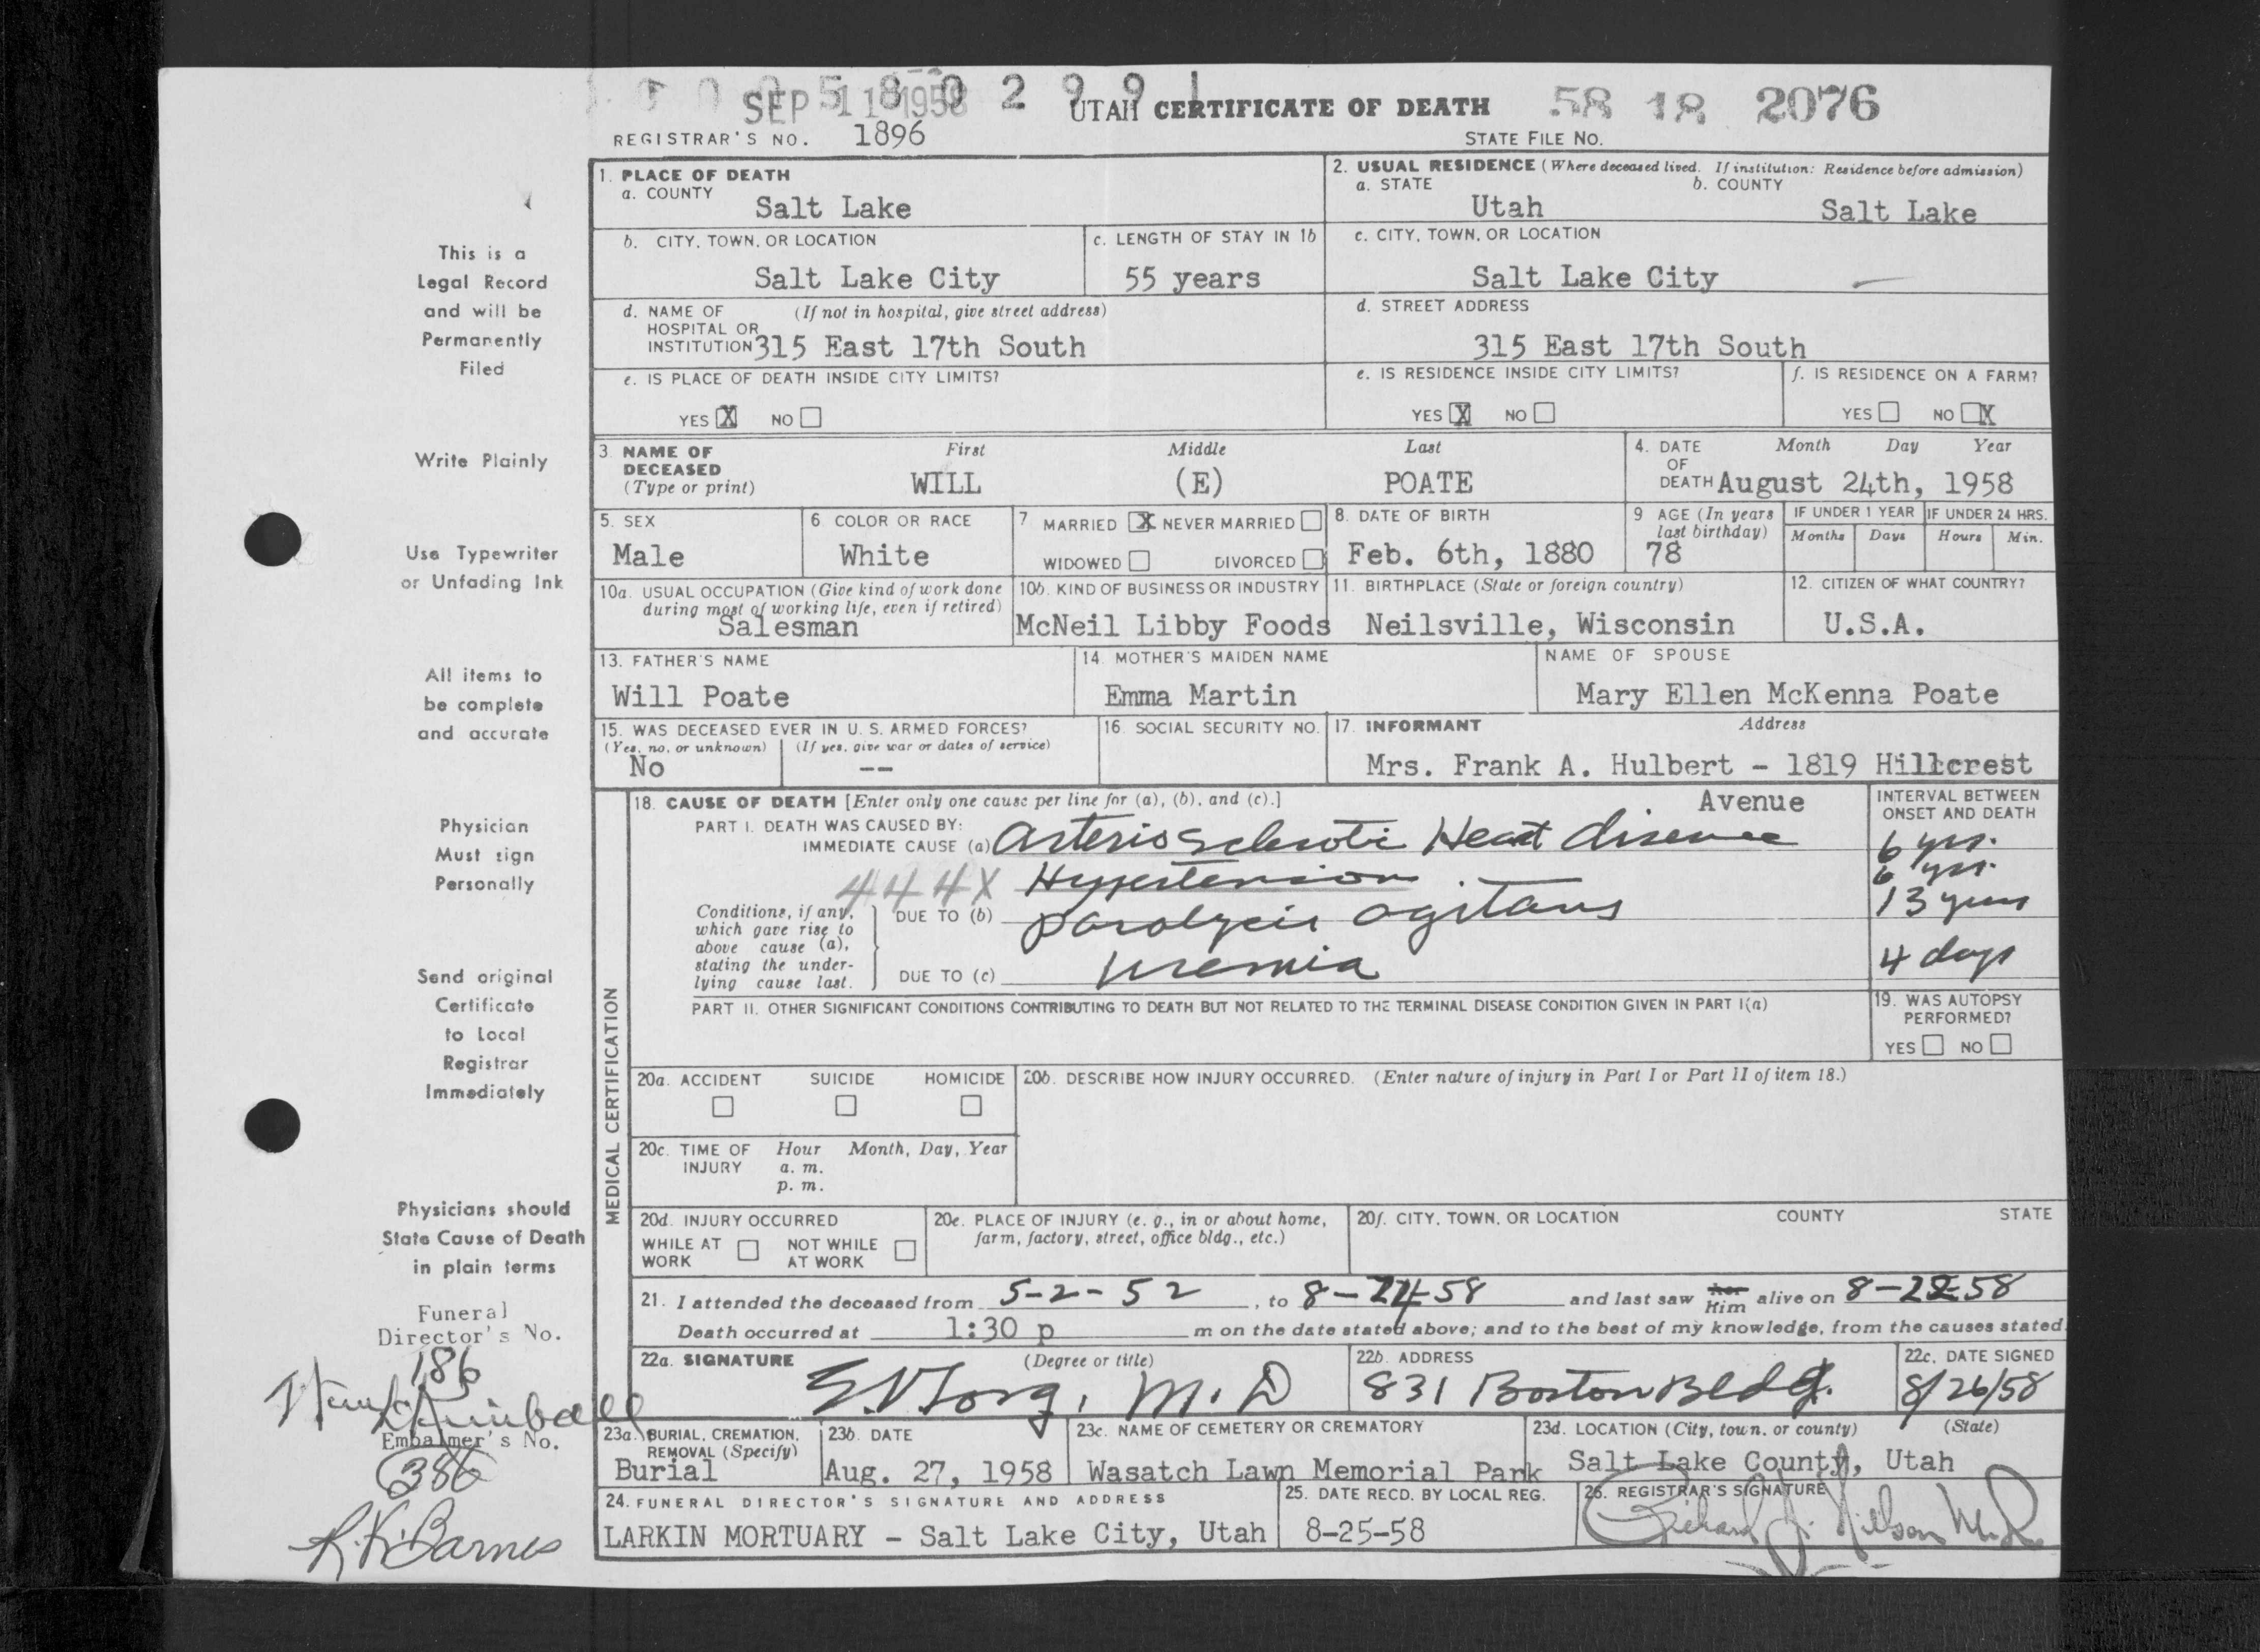 SEP 11 1958
UTAH CERTIFICATE OF DEATH 58 18 2076
REGISTRAR'S NO. 1896 STATE FILE NO.
1. PLACE OF DEATH
a. COUNTY
Salt Lake
2. USUAL RESIDENCE (Where deceased lived. If institution: Residence before admission)
a. STATE b. COUNTY
Utah Salt Lake
b. CITY, TOWN, OR LOCATION
Salt Lake City
c. LENGTH OF STAY IN 1b
55 years
c. CITY, TOWN, OR LOCATION
Salt Lake City
d. NAME OF (If not in hospital, give street address)
HOSPITAL OR
INSTITUTION 315 East 17th South
d. STREET ADDRESS
315 East 17th South
e. IS PLACE OF DEATH INSIDE CITY LIMITS?
YES X NO
e. IS RESIDENCE INSIDE CITY LIMITS?
YES X NO
f. IS RESIDENCE ON A FARM?
YES NO X
3. NAME OF DECEASED (Type or print)
First Middle Last
WILL (E) POATE
4. DATE OF DEATH Month Day Year
August 24th, 1958
5. SEX
Male
6. COLOR OR RACE
White
7. MARRIED X NEVER MARRIED
WIDOWED DIVORCED
8. DATE OF BIRTH
Feb. 6th, 1880
9. AGE (In years last birthday)
78
IF UNDER 1 YEAR IF UNDER 24 HRS.
Months Days Hours Min.
10a. USUAL OCCUPATION (Give kind of work done
during most of working life, even if retired)
Salesman
10b. KIND OF BUSINESS OR INDUSTRY
McNeil Libby Foods
11. BIRTHPLACE (State or foreign country)
Neilsville, Wisconsin
12. CITIZEN OF WHAT COUNTRY?
U.S.A.
13. FATHER'S NAME
Will Poate
14. MOTHER'S MAIDEN NAME
Emma Martin
NAME OF SPOUSE
Mary Ellen McKenna Poate
15. WAS DECEASED EVER IN U. S. ARMED FORCES?
(Yes, no, or unknown) (If yes, give war or dates of service)
No --
16. SOCIAL SECURITY NO.
17. INFORMANT Address
Mrs. Frank A. Hulbert - 1819 Hillcrest
Avenue
MEDICAL CERTIFICATION
18. CAUSE OF DEATH [Enter only one cause per line for (a), (b), and (c).]
INTERVAL BETWEEN
ONSET AND DEATH
PART I. DEATH WAS CAUSED BY:
IMMEDIATE CAUSE (a) Arteriosclerotic Heart disease 6 yrs.
444X Hypertension 6 yrs.
Conditions, if any,
which gave rise to
above cause (a),
stating the under-
lying cause last.
DUE TO (b) paralysis agitans 13 years
DUE TO (c) uremia 4 days
PART II. OTHER SIGNIFICANT CONDITIONS CONTRIBUTING TO DEATH BUT NOT RELATED TO THE TERMINAL DISEASE CONDITION GIVEN IN PART I(a)
19. WAS AUTOPSY
PERFORMED?
YES NO
20a. ACCIDENT SUICIDE HOMICIDE
20b. DESCRIBE HOW INJURY OCCURRED. (Enter nature of injury in Part I or Part II of item 18.)
20c. TIME OF INJURY Hour Month, Day, Year
a. m.
p. m.
20d. INJURY OCCURRED
WHILE AT WORK NOT WHILE AT WORK
20e. PLACE OF INJURY (e. g., in or about home,
farm, factory, street, office bldg., etc.)
20f. CITY, TOWN, OR LOCATION COUNTY STATE
21. I attended the deceased from 5-2-52, to 8-24-58 and last saw her him alive on 8-22-58
Death occurred at 1:30 p m on the date stated above; and to the best of my knowledge, from the causes stated
22a. SIGNATURE (Degree or title)
M.D
22b. ADDRESS
831 Boston Bldg.
22c. DATE SIGNED
8/26/58
23a. BURIAL, CREMATION,
REMOVAL (Specify)
Burial
23b. DATE
Aug. 27, 1958
23c. NAME OF CEMETERY OR CREMATORY
Wasatch Lawn Memorial Park
23d. LOCATION (City, town, or county) (State)
Salt Lake County, Utah
24. FUNERAL DIRECTOR'S SIGNATURE AND ADDRESS
LARKIN MORTUARY - Salt Lake City, Utah
25. DATE RECD. BY LOCAL REG.
8-25-58
26. REGISTRAR'S SIGNATURE
Richard J. Nelson
This is a
Legal Record
and will be
Permanently
Filed
Write Plainly
Use Typewriter
or Unfading Ink
All items to
be complete
and accurate
Physician
Must sign
Personally
Send original
Certificate
to Local
Registrar
Immediately
Physicians should
State Cause of Death
in plain terms
Funeral
Director's No.
186
Kimball
Embalmer's No.
386
R.K. Barnes